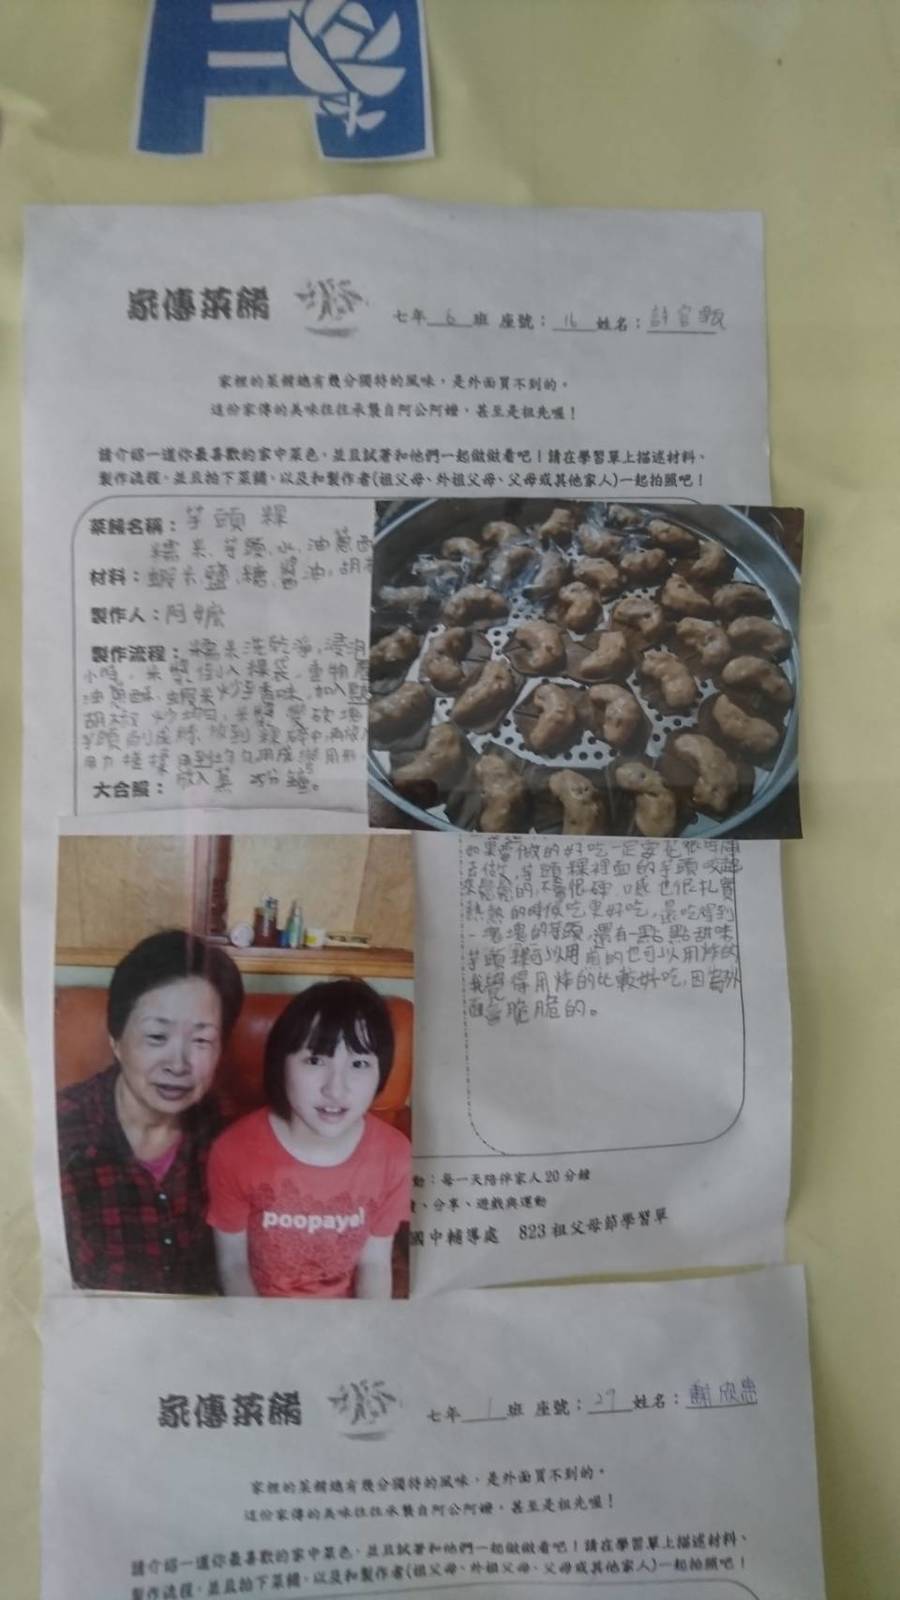 家傳菜餚
七年 6 班 座號： 16 姓名：許
家裡的菜餚總有幾分獨特的風味，是外面買不到的。
這份家傳的美味往往承襲自阿公阿嬤，甚至是祖先喔！
請介紹一道你最喜歡的家中菜色，並且試著和他們一起做做看吧！請在學習單上描述材料、
製作流程，並且拍下菜餚，以及和製作者(祖父母、外祖父母、父母或其他家人)一起拍照吧！
菜餚名稱：芋頭粿
糯米、芋頭、水、油蔥酥
材料：蝦米、鹽、糖、醬油、胡
製作人：阿嬤
製作流程：糯米洗乾淨，浸泡
小時，米漿倒入粿袋，重物壓
油蔥酥、蝦米炒至香味，加入
胡椒 炒均勻，米漿變
芋頭刨成絲，放到
用力搓揉
放入蒸 25分鐘。
大合照：
做的好吃一定要花很
去做，芋頭粿裡面的芋頭咬起
來鬆鬆的，不會很硬，口感也很扎實
熱熱的時候吃更好吃，還吃得到
一塊塊的芋頭，還有一點點甜味
芋頭粿可以用煎的也可以用炸的
我覺得用炸的比較好吃，因為外
面會脆脆的。
動：每一天陪伴家人20分鐘
、分享、遊戲與運動
國中輔導處 823祖父母節學習單
poopaye!
家傳菜餚
七年 1 班 座號： 27 姓名：謝欣
家裡的菜餚總有幾分獨特的風味，是外面買不到的。
這份家傳的美味往往承襲自阿公阿嬤，甚至是祖先喔！
請介紹一道你最喜歡的家中菜色，並且試著和他們一起做做看吧！請在學習單上描述材料、
製作流程，並且拍下菜餚，以及和製作者(祖父母、外祖父母、父母或其他家人)一起拍照吧！